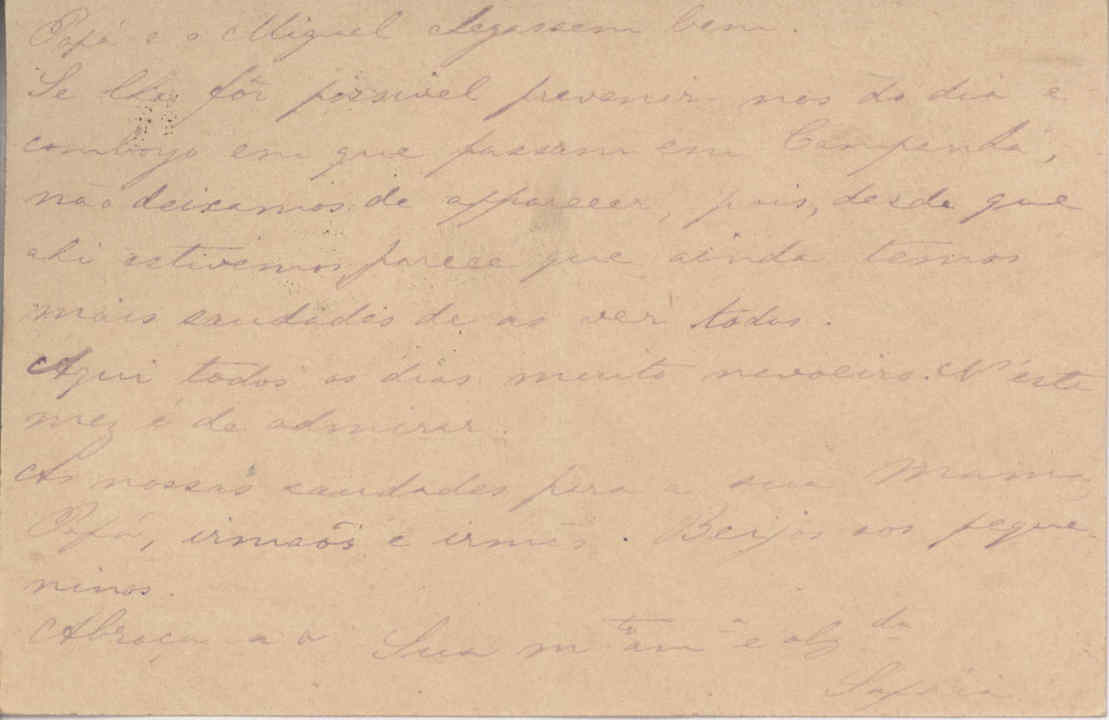 Papá e o Miguel chegassem bem.
Se lhes fôr possivel prevenir-nos do dia e
comboyo em que passam em Campanhã,
não deixamos de apparecer, pois, desde que
ahi estivemos, parece que ainda temos
mais saudades de as ver todas.
Aqui todos os dias muito nevoeiro. N'este
mez é de admirar.
As nossas saudades para a sua Mamã
Papá, irmãos e irmãs. Beijos aos peque-
ninos.
Abraça a a Sua m.to am.a e ob.da